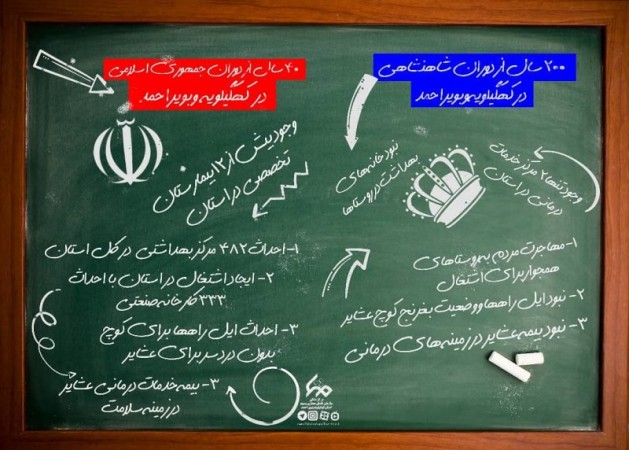 ۲۰۰ سال از دوران شاهنشاهی
در کهگیلویه و بویراحمد
وجود تنها ۲ مرکز خدمات
درمانی در استان
نبود خانه‌های
بهداشت در روستاها
۱- مهاجرت مردم به روستاهای
همجوار برای اشتغال
۲- نبود ایل راهها و وضعیت بغرنج کوچ عشایر
۳- نبود بیمه عشایر در زمینه‌های درمانی
۴۰ سال از دوران جمهوری اسلامی
در کهگیلویه و بویراحمد
وجود بیش از ۱۲ بیمارستان
تخصصی در استان
۱- احداث ۴۸۲ مرکز بهداشتی در کل استان
۲- ایجاد اشتغال در استان با احداث
۳۳۳ کارخانه صنعتی
۳- احداث ایل راهها برای کوچ
بدون دردسر برای عشایر
۳- بیمه خدمات درمانی عشایر
در زمینه سلامت